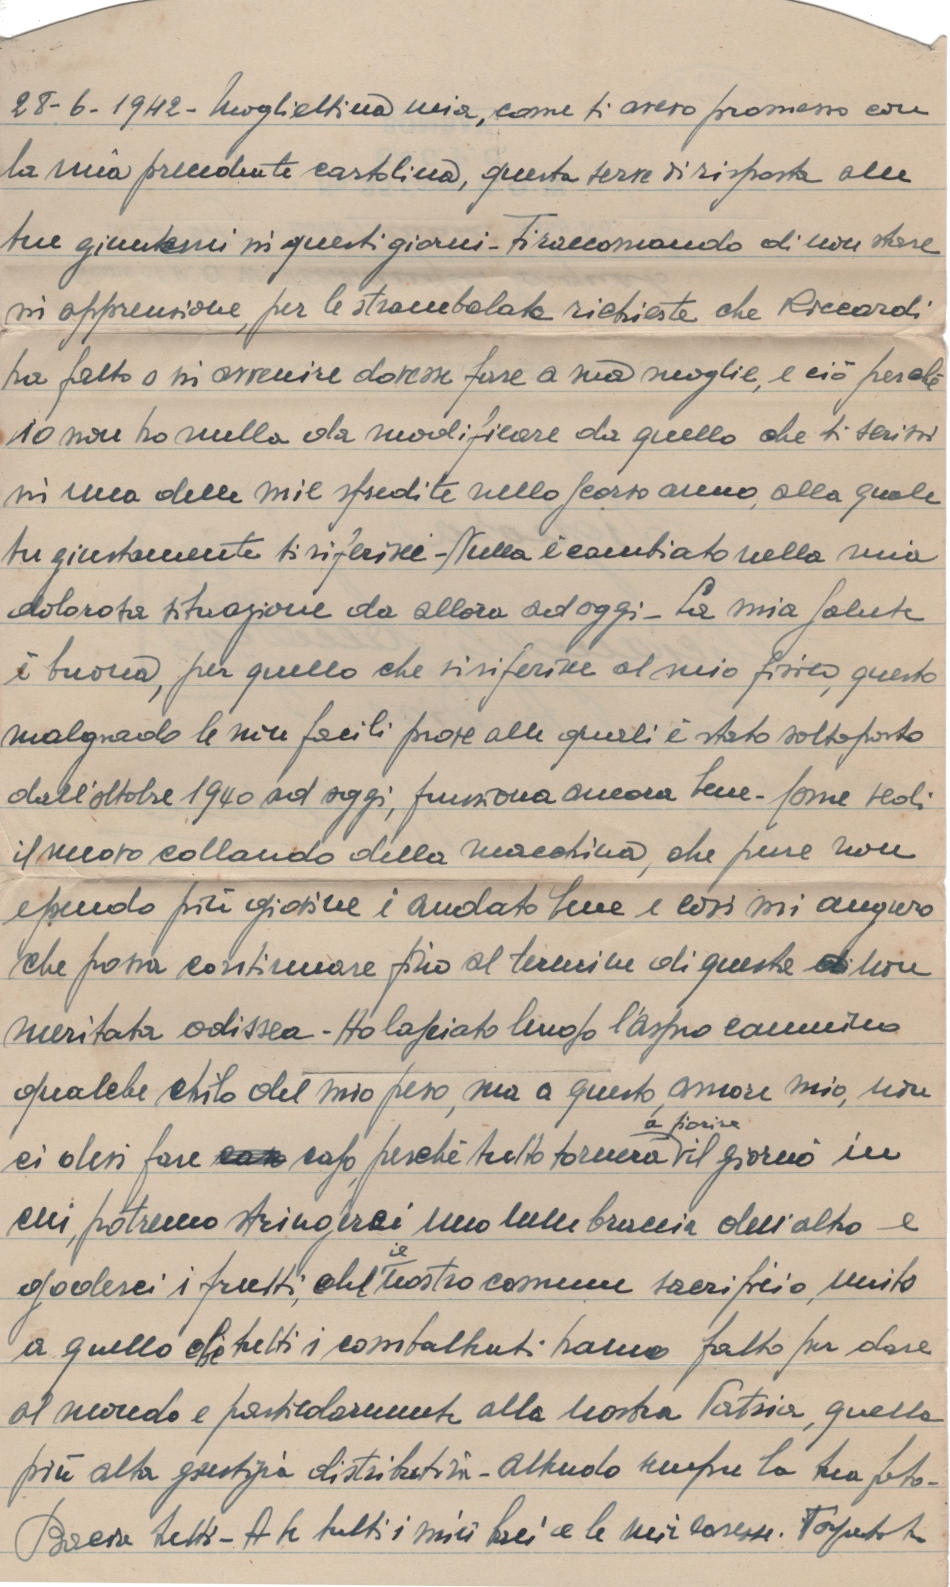 28-6-1942- Mogliettina mia, come ti avevo promesso con
la mia precedente cartolina, questa serve di risposta alle
tue giuntemi in questi giorni- Ti raccomando di non stare
in apprensione, per le strambalate richieste che Riccardi
ha fatto o in avvenire dovesse fare a mia moglie, e ciò perchè
io non ho nulla da modificare da quello che ti scrissi
in una delle mie spedite nello scorso anno, alla quale
tu giustamente ti riferisci- Nulla è cambiato nella mia
dolorosa situazione da allora ad oggi- La mia salute
è buona, per quello che si riferisce al mio fisico, questo
malgrado le non facili prove alle quali è stato sottoposto
dall'ottobre 1940 ad oggi, funziona ancora bene- Come vedi
il nuovo collaudo della macchina, che pure non
essendo più giovine è andato bene e così mi auguro
che possa continuare fino al termine di questa non
meritata odissea- Ho lasciato lungo l'aspro cammino
qualche chilo del mio peso, ma a questo, amore mio, non
ci devi fare caso, perchè tutto tornerà a fiorire il giorno in
cui, potremo stringerci uno nelle braccia dell'altro e
goderci i frutti, che il nostro comune sacrificio, unito
a quello che tutti i combattenti hanno fatto per dare
al mondo e particolarmente alla nostra Patria, quella
più alta giustizia distributiva- Attendo sempre la tua foto-
Bacia tutti- A te tutti i miei baci e le mie carezze.